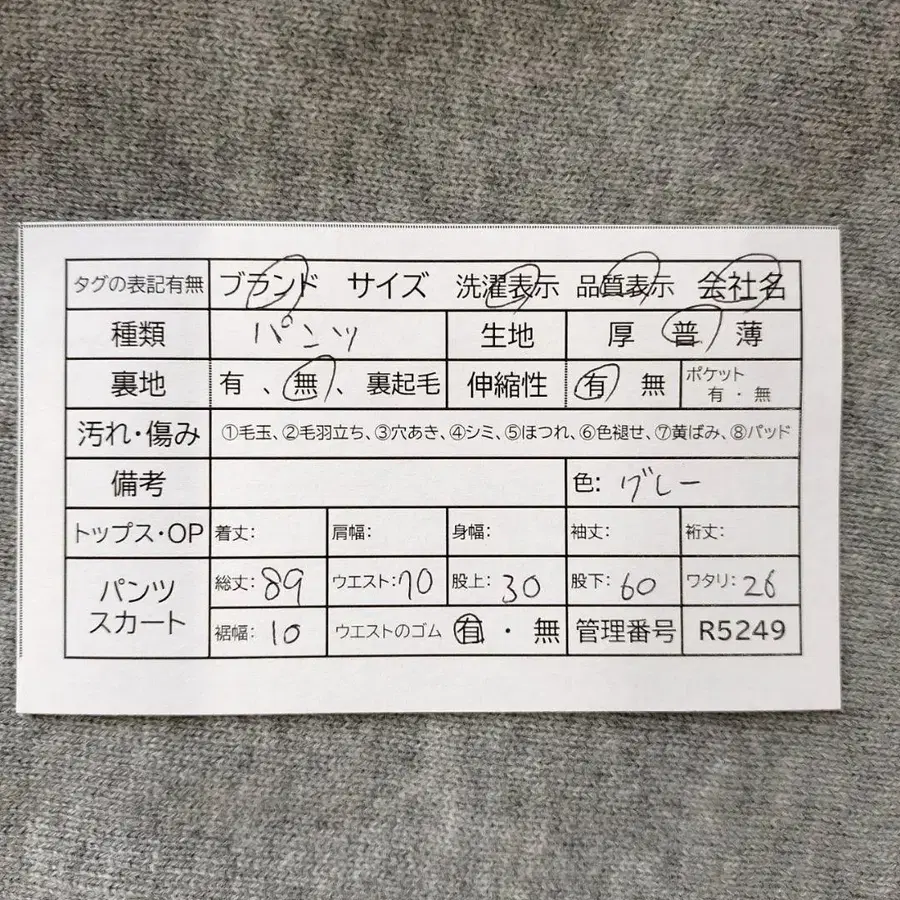 タグの表記有無 ブランド サイズ 洗濯表示 品質表示 会社名
種類 パンツ 生地 厚 普 薄
裏地 有 、無、裏起毛 伸縮性 有 無 ポケット 有・無
汚れ・傷み ①毛玉、②毛羽立ち、③穴あき、④シミ、⑤ほつれ、⑥色褪せ、⑦黄ばみ、⑧パッド
備考 色: グレー
トップス・OP 着丈: 肩幅: 身幅: 袖丈: 裄丈:
パンツ スカート 総丈: 89 ウエスト: 70 股上: 30 股下: 60 ワタリ: 26
裾幅: 10 ウエストのゴム 有・無 管理番号 R5249